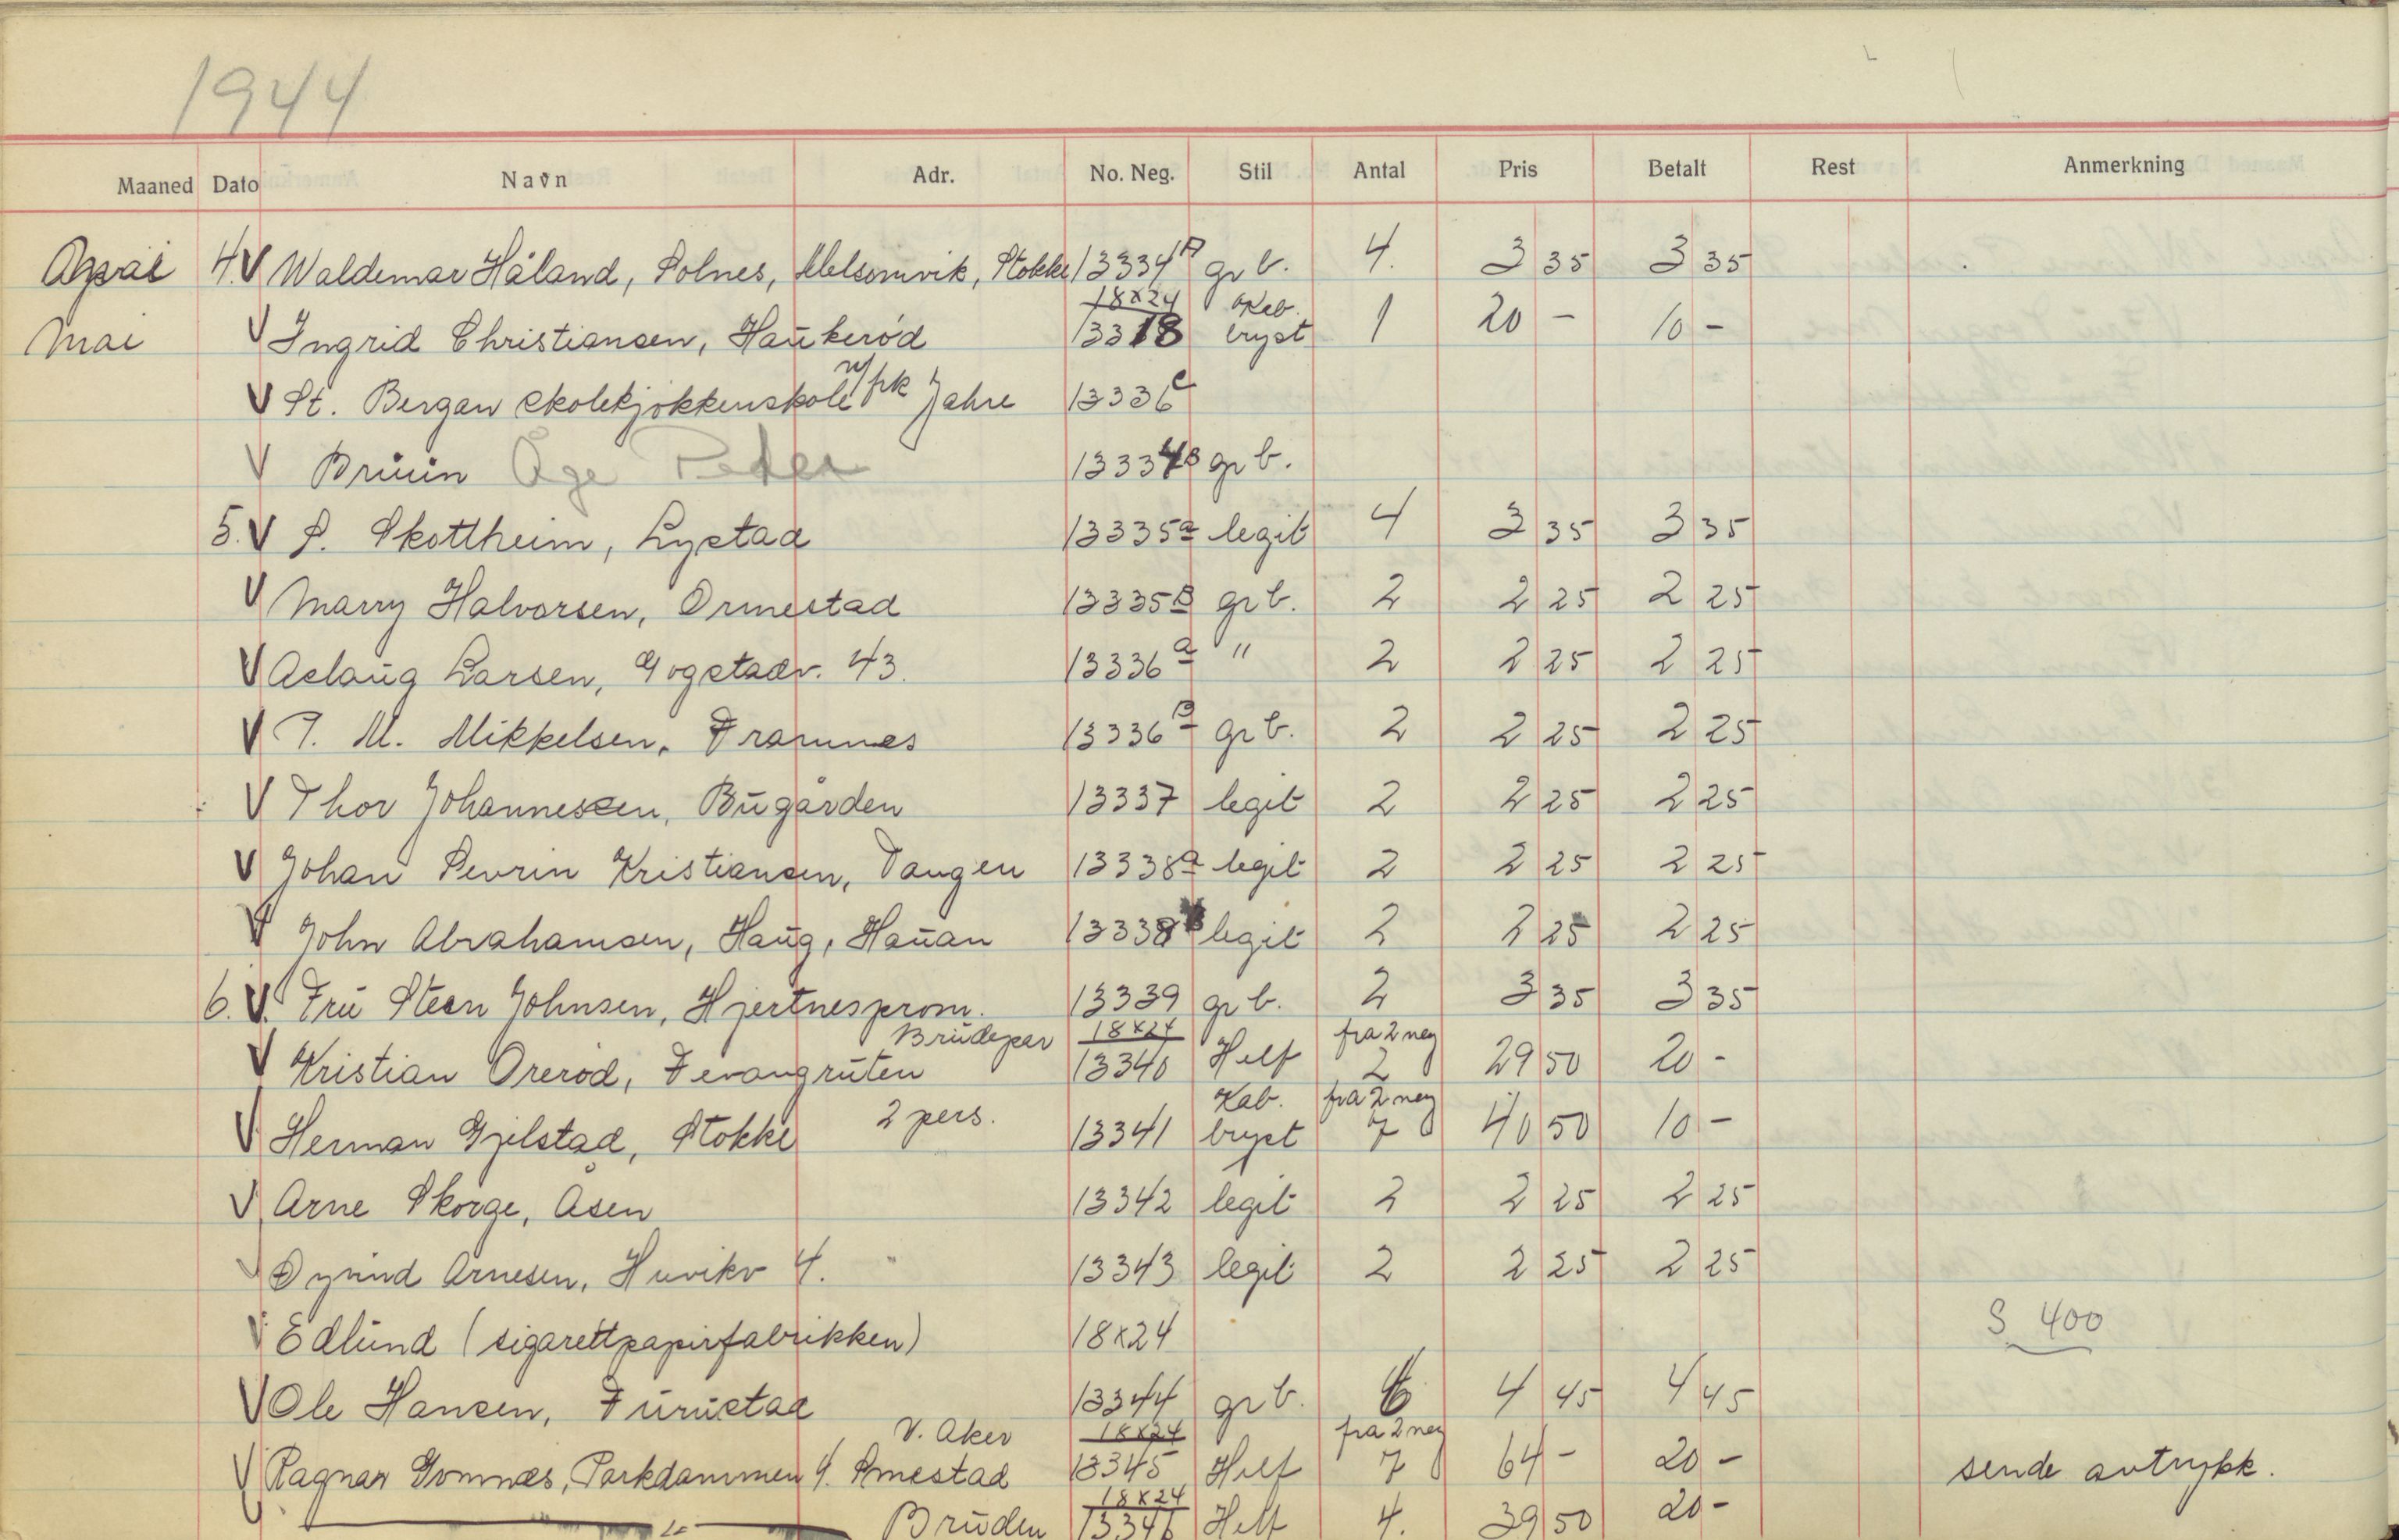 1944
Maaned Dato Navn Adr. No. Neg. Stil Antal Pris Betalt Rest Anmerkning
4. V Waldemar Håland, Solnes, Melsomvik, Stokke 13334A gr b. 4. 3 35 3 35
18x24 Kab.
Mai V Ingrid Christiansen, Haukerød 13318 bryst 1 20 - 10 -
V St. Bergan skolekjøkkenskole v/frk Jahre 13336c
V Bruun Åge Peder 13334B gr b.
5. V S. Skottheim, Lystad 13335a legit 4 3 35 3 35
V Marry Halvorsen, Ormestad 13335B gr b. 2 2 25 2 25
V Aslaug Larsen, Gogstadv. 43. 13336a " 2 2 25 2 25
V T. M. Mikkelsen, Framnes 13336B gr b. 2 2 25 2 25
V Thor Johannessen, Bugården 13337 legit 2 2 25 2 25
V Johan Sevrin Kristiansen, Vangen 13338a legit 2 2 25 2 25
V John Abrahamsen, Haug, Hauan 13338B legit 2 2 25 2 25
6. V. Fru Steen Johnsen, Hjertnesprom. 13339 gr b. 2 3 35 3 35
Brudepar 18x24 fra 2 neg
V Kristian Ørerød, Fevangruten 13340 Helf 2 29 50 20 -
2 pers. Kab. fra 2 neg
V Herman Gjelstad, Stokke 13341 bryst 7 40 50 10 -
V Arne Skorge, Åsen 13342 legit 2 2 25 2 25
V Øyvind Arnesen, Huvikv 4. 13343 legit 2 2 25 2 25
V Edlund (sigarettpapirfabrikken) 18x24 S 400
V Ole Hansen, Furustad 13344 gr b. 6 4 45 4 45
V. Aker 18x24 fra 2 neg
V Ragnar Gomnæs, Parkdammen 4. Smestad 13345 Helf 7 64 - 20 - sende avtrykk.
18x24
Bruden 13346 Helf 4. 39 50 20 -